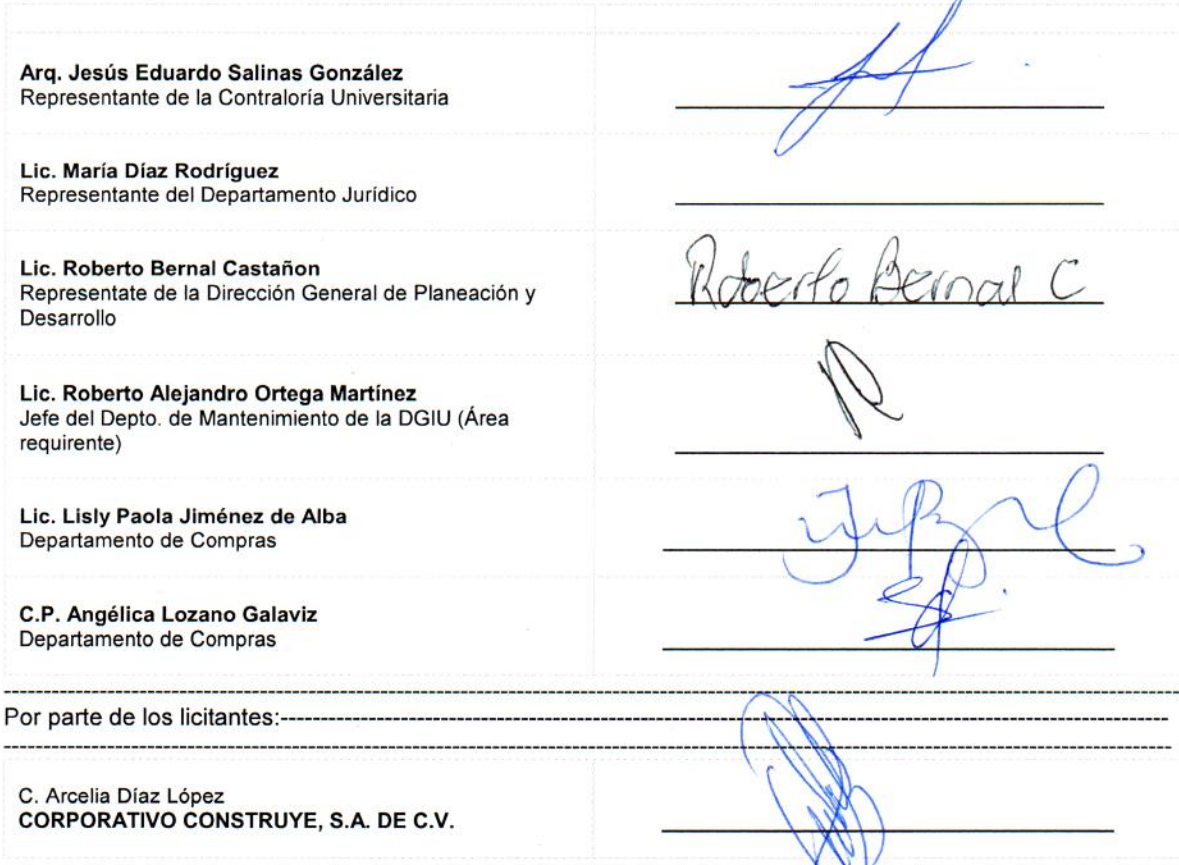 Arq. Jesús Eduardo Salinas González
Representante de la Contraloría Universitaria
Lic. María Díaz Rodríguez
Representante del Departamento Jurídico
Lic. Roberto Bernal Castañon
Representate de la Dirección General de Planeación y
Desarrollo
Roberto Bernal C
Lic. Roberto Alejandro Ortega Martínez
Jefe del Depto. de Mantenimiento de la DGIU (Área
requirente)
Lic. Lisly Paola Jiménez de Alba
Departamento de Compras
C.P. Angélica Lozano Galaviz
Departamento de Compras
Por parte de los licitantes:
C. Arcelia Díaz López
CORPORATIVO CONSTRUYE, S.A. DE C.V.